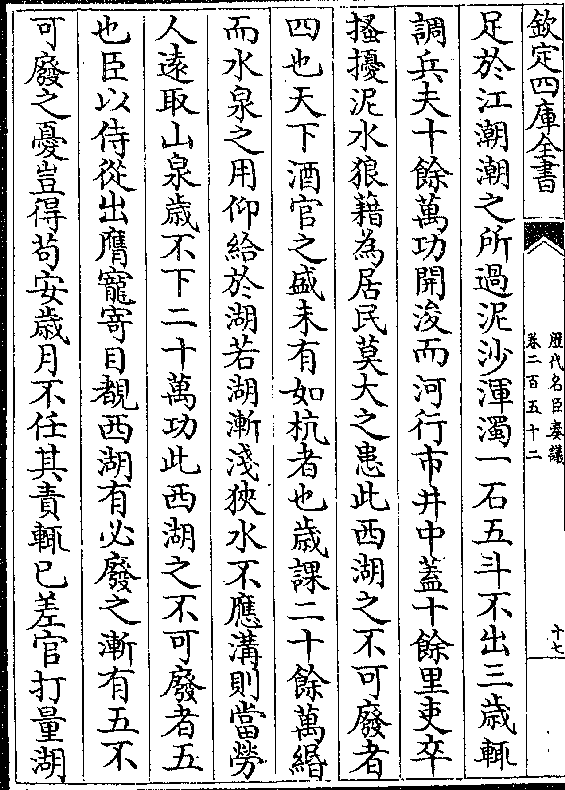 欽定四庫全書
歷代名臣奏議
卷二百五十二
十七
足於江潮潮之所過泥沙渾濁一石五斗不出三歲輒
調兵夫十餘萬功開浚而河行市井中蓋十餘里吏卒
搔擾泥水狼藉為居民莫大之患此西湖之不可廢者
四也天下酒官之盛未有如杭者也歲課二十餘萬緡
而水泉之用仰給於湖若湖漸淺狹水不應溝則當勞
人逺取山泉歲不下二十萬功此西湖之不可廢者五
也臣以侍從出膺寵寄目覩西湖有必廢之漸有五不
可廢之憂豈得苟安歲月不任其責輒已差官打量湖